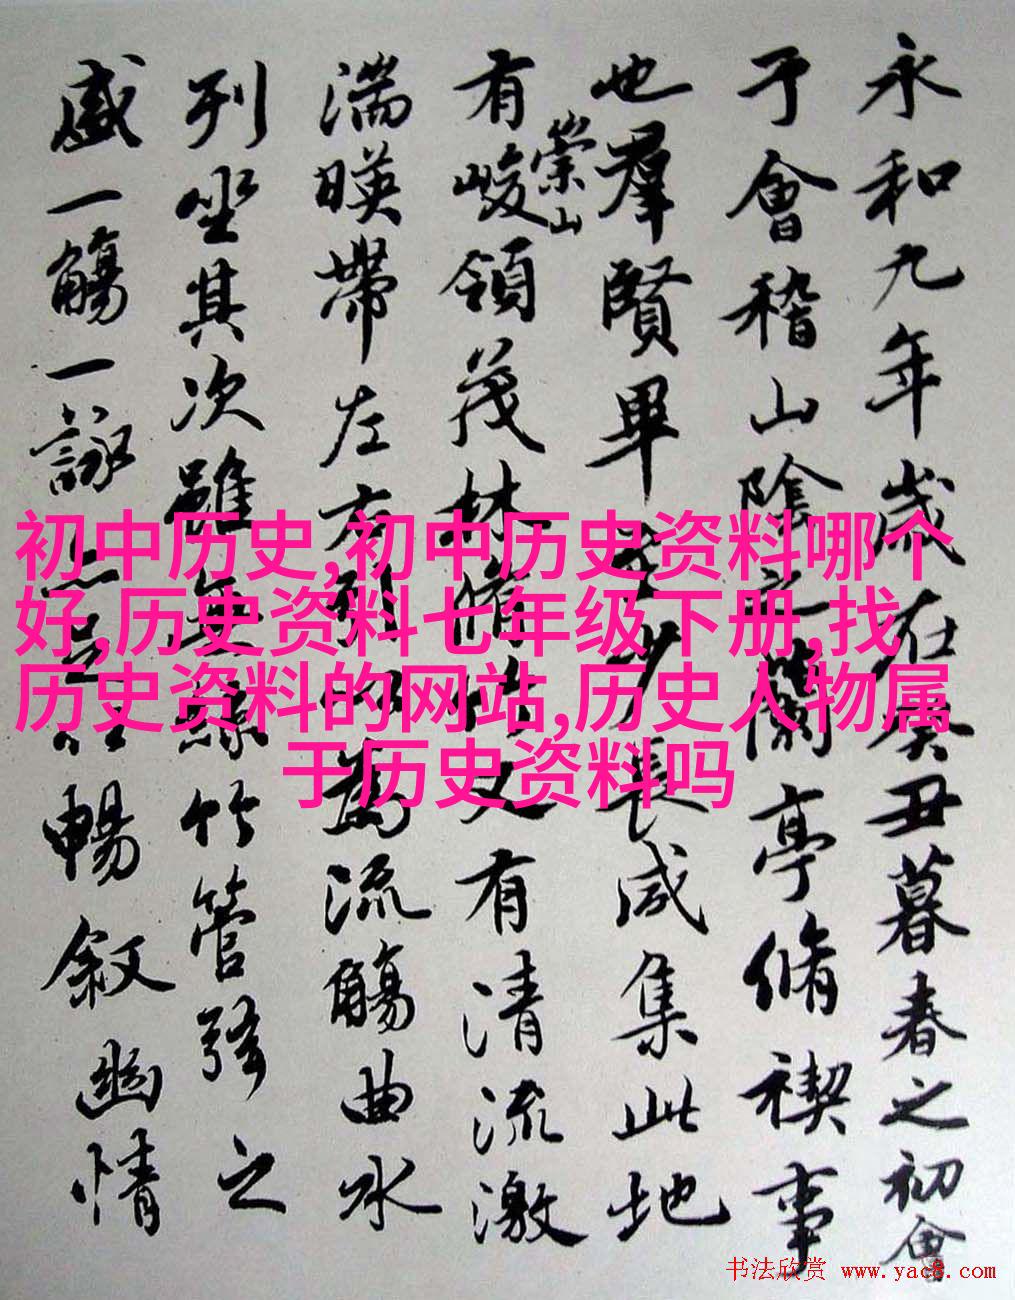 永和九年歲在癸丑暮春之初會
于會稽山陰之蘭亭脩禊事
也羣賢畢至少長咸集此地
有崇山峻領茂林脩竹又有清流激
湍暎帶左右引以為流觴曲水
列坐其次雖無絲竹管弦之
盛一觴一詠亦足以暢敘幽情
初中历史,初中历史资料哪个
好,历史资料七年级下册,找
历史资料的网站,历史人物属
于历史资料吗
书法欣赏 www.yac8.com